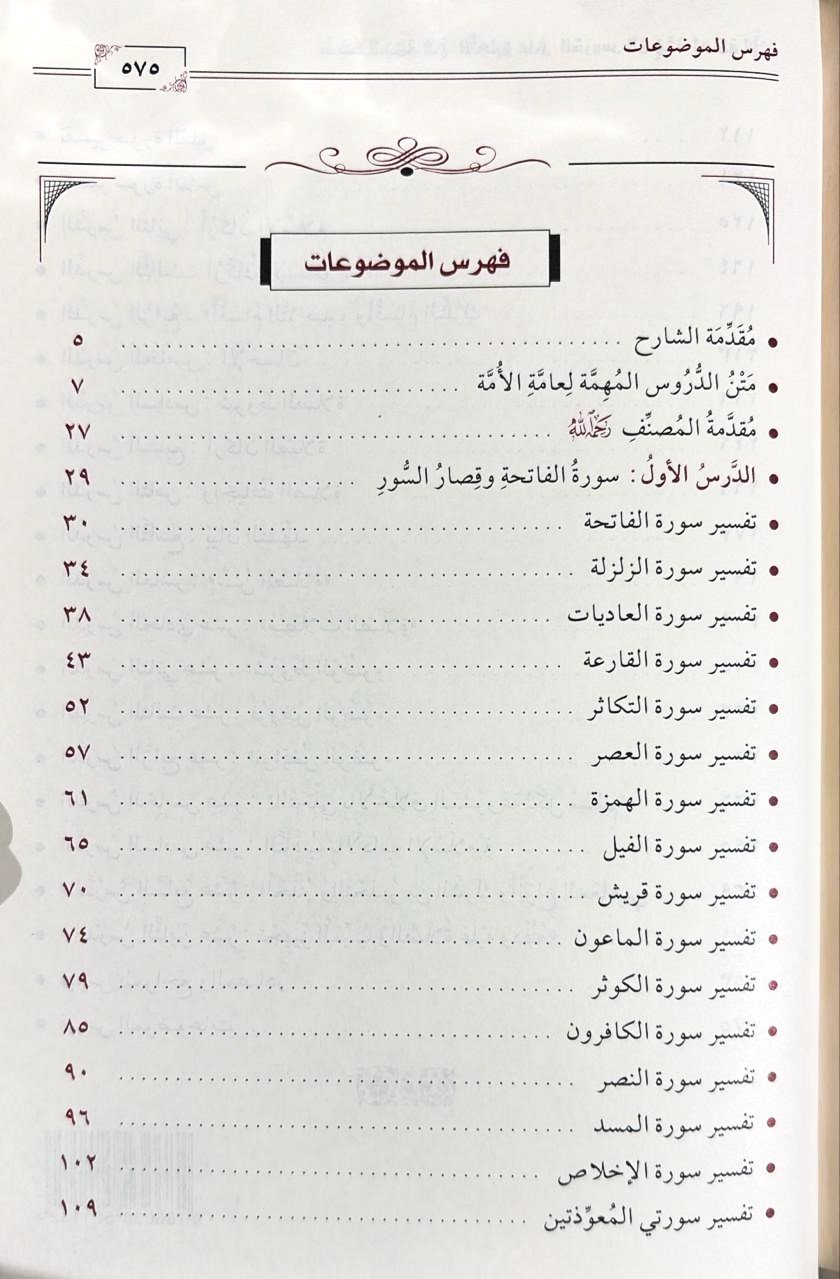 فهرس الموضوعات
٥٧٥
فهرس الموضوعات
• مُقَدِّمَة الشارح ........ ٥
• مَتْنُ الدُّرُوس المُهِمَّة لِعامَّةِ الأُمَّة ........ ٧
• مُقدَّمةُ المُصنِّفِ رَحِمَهُ اللَّهُ ........ ٢٧
• الدَّرسُ الأولُ: سورةُ الفاتحةِ وقِصارُ السُّورِ ........ ٢٩
• تفسير سورة الفاتحة ........ ٣٠
• تفسير سورة الزلزلة ........ ٣٤
• تفسير سورة العاديات ........ ٣٨
• تفسير سورة القارعة ........ ٤٣
• تفسير سورة التكاثر ........ ٥٢
• تفسير سورة العصر ........ ٥٧
• تفسير سورة الهمزة ........ ٦١
• تفسير سورة الفيل ........ ٦٥
• تفسير سورة قريش ........ ٧٠
• تفسير سورة الماعون ........ ٧٤
• تفسير سورة الكوثر ........ ٧٩
• تفسير سورة الكافرون ........ ٨٥
• تفسير سورة النصر ........ ٩٠
• تفسير سورة المسد ........ ٩٦
• تفسير سورة الإخلاص ........ ١٠٢
• تفسير سورتي المُعوِّذتين ........ ١٠٩